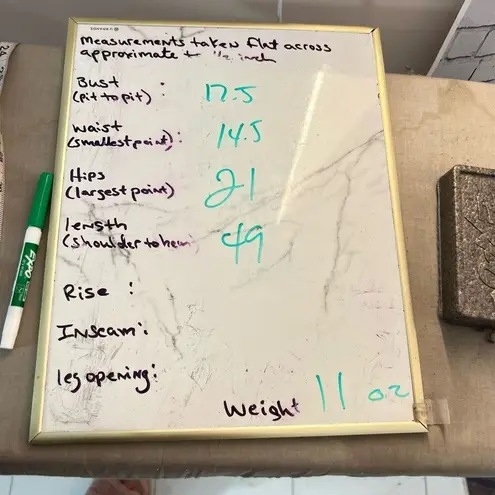 Measurements taken flat across
approximate + 1/2 inch
Bust : 17.5
(pit to pit)
Waist : 14.5
(smallest point)
Hips 21
(largest point)
length 49
(shoulder to hem)
Rise :
Inseam :
leg opening :
Weight 11 oz
EXPO